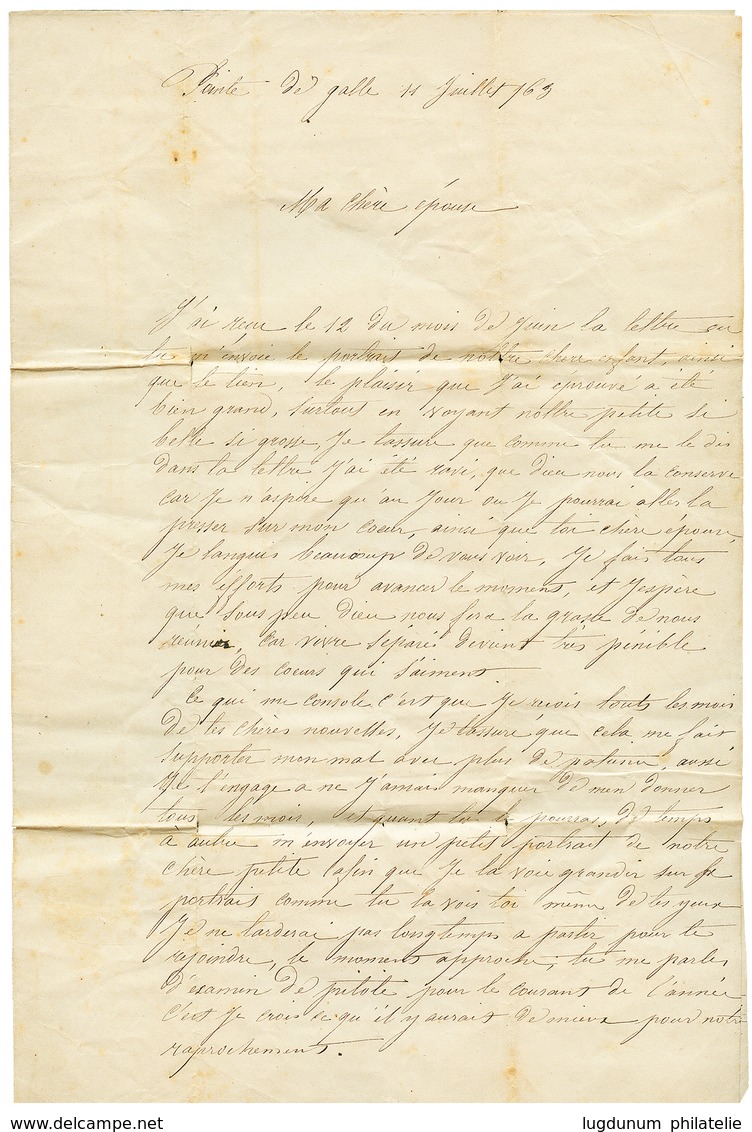 Pointe de galle 11 Juillet /63
Ma chère épouse
J'ai reçu le 12 du mois de Juin la lettre ou
tu m'envoie le portrait de nottre chere enfant, ainsi
que le tien, le plaisir que J'ai éprouvé a été
bien grand, surtout en voyant nottre petite si
belle si grosse, Je tassure que comme tu me le dis
dans ta lettre J'ai été ravi, que dieu nous la conserve
car Je n'aspire qu'au Jour ou Je pourrai aller la
presser sur mon coeur, ainsi que toi chère epouse
Je languis beaucoup de vous voir, Je fais tous
mes efforts pour avancer le moment, et J'espère
que sous peu dieu nous fera la grasse de nous
reunir, car vivre separé devient très pénible
pour des coeurs qui s'aiment.
Ce qui me console c'est que Je reçois touts les mois
de tes chères nouvelles, Je tassure que cela me fait
supporter mon mal avec plus de patience, aussi
Je t'engage a ne J'amais manquer de m'en donner
tous les mois, et quant tu le pourras, de temps
à autre m'envoyer un petit portrait de notre
chère petite afin que Je la voie grandir sur le
portrait comme tu la vois toi même de tes yeux
Je ne tarderai pas longtemps a partir pour te
rejoindre, le moment approche, tu me parles
d'examin de pilote pour le courant de l'année
c'est Je crois se qu'il y aurait de mieux pour notre
raprochement.
lugdunum philatelie
www.delcampe.net